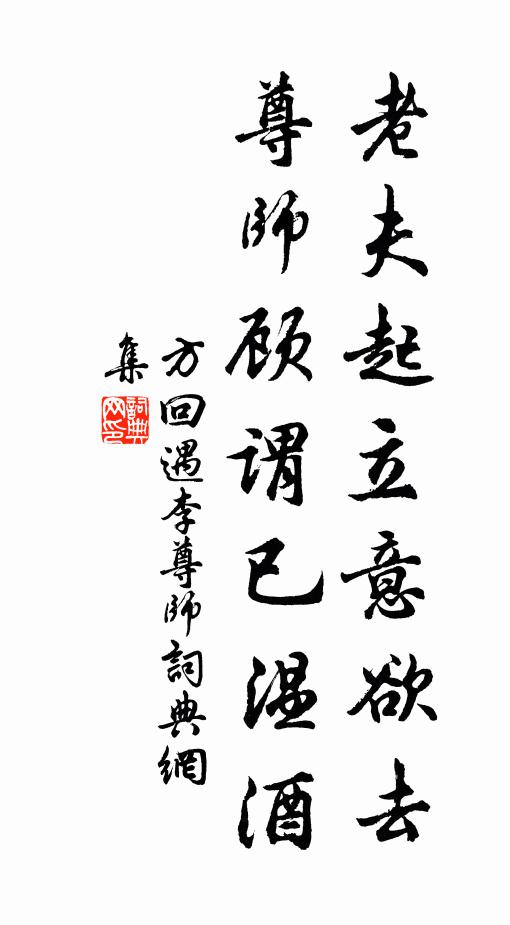 老夫起立意欲去
尊師顾謂已温酒
方回遇李尊師詞典網
集
詞典网印